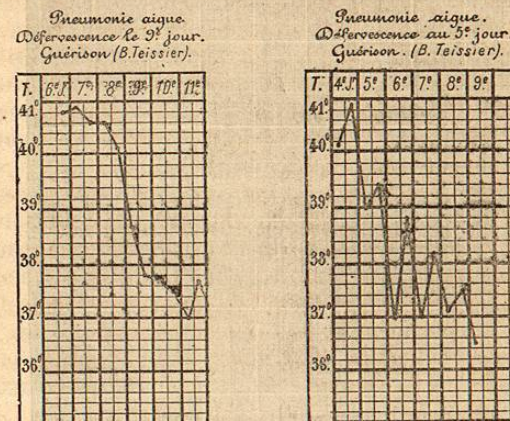 Pneumonie aigue.
Défervescence le 9e jour.
Guérison (B. Teissier).
T. 6e Jr 7e 8e 9e 10e 11e
41°
40°
39°
38°
37°
36°
Pneumonie aigue.
Défervescence au 5e jour
Guérison. (B. Teissier).
T. 4e Jr 5e 6e 7e 8e 9e
41°
40°
39°
38°
37°
36°